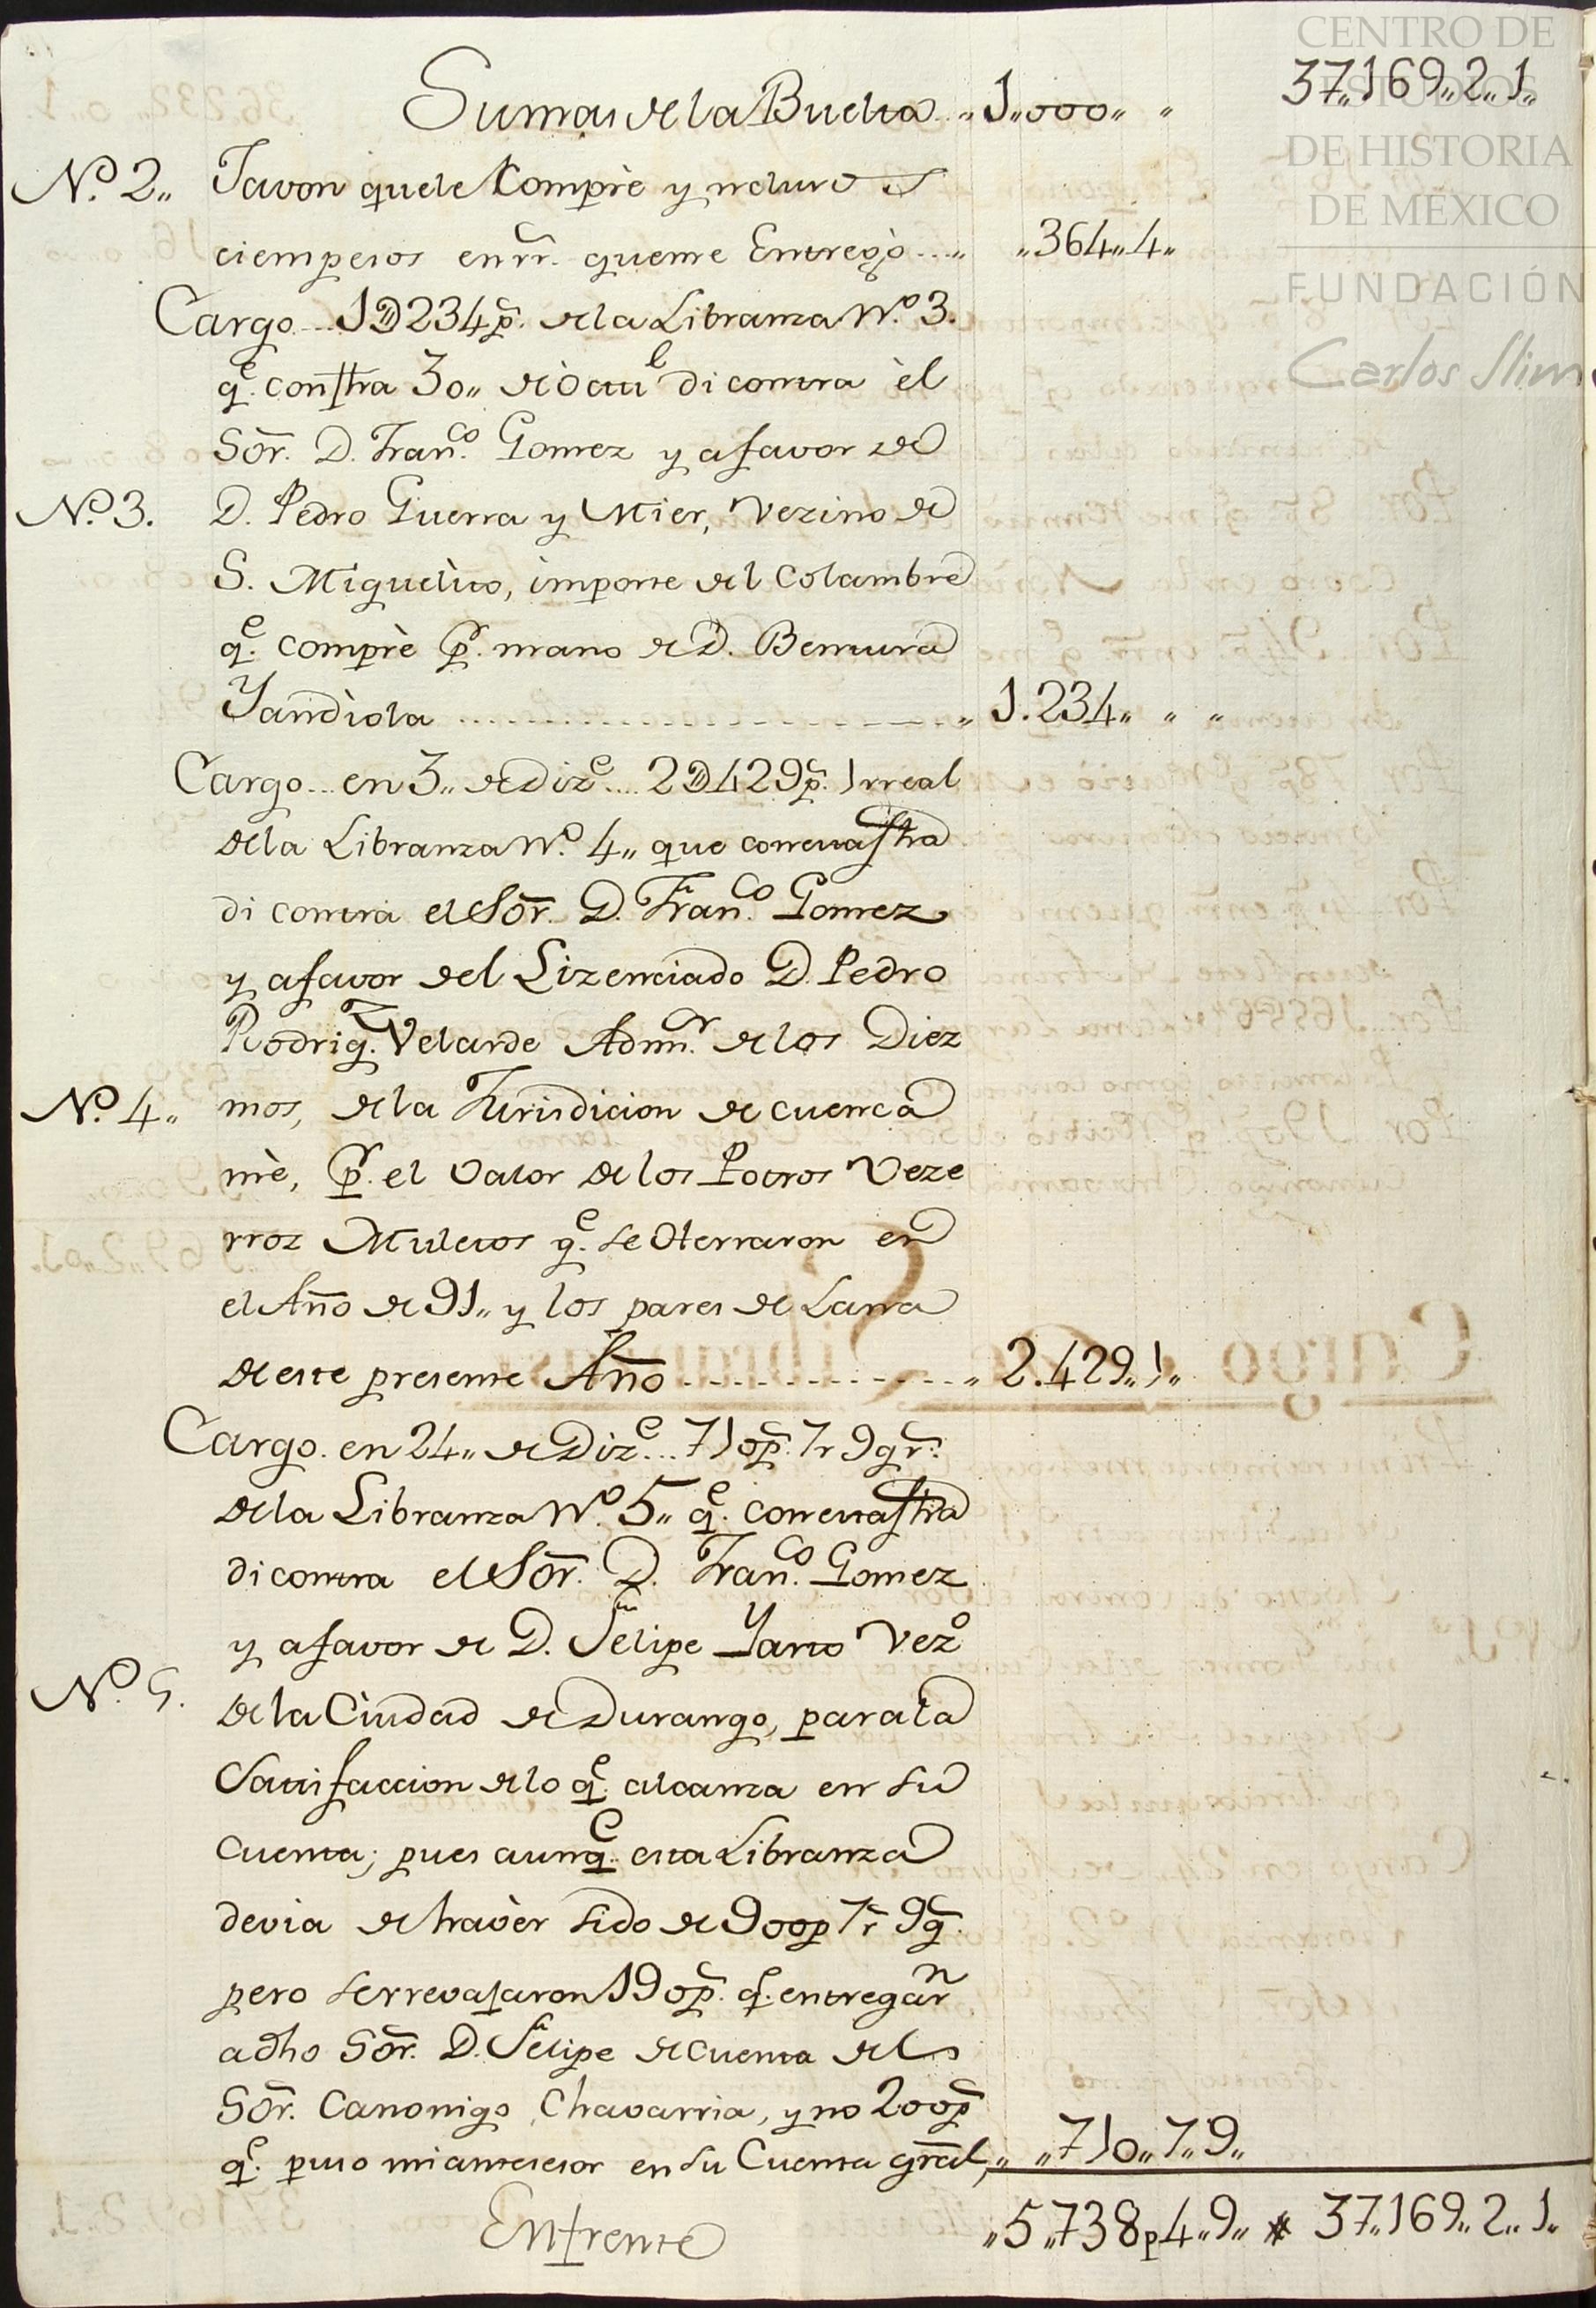 CENTRO DE
ESTUDIOS
DE HISTORIA
DE MÉXICO
FUNDACIÓN
Carlos Slim
Sumas de la Buelta „ 1„000„ „ 37„169„2„1„
No. 2„ Javon que le Comprè y nclusos
cien pesos en rr̃. que me Entregò...„ „364„4„
Cargo...1D234p̃. de la Libranza No. 3.
qe. con ftra 30„ de Octul di contra èl
Sõr. D. Franco. Gomez y a favor de
No. 3. D. Pedro Guerra y Mier, Vezino de
S. Miguelito, importe del Colambre
qe. comprè pr. mano de D. Bentura
Yandiola .................... „ 1.234„ „ „
Cargo... en 3„ de Dize.... 2D429p̃. 1 rreal
de la Libranza No. 4„ que con esta ftra
di contra el Sõr. D. Franco. Gomez
y a favor del Lizenciado D. Pedro
Rodrigz. Velarde Admr. de los Diez
No. 4„ mos, de la Jurisdicion de cuenca
mè, pr. el valor de los Potros Veze
rros Muletos qe. se Herraron en
el Año de 91„ y los pares de Lana
de este presente Año ............. „ 2.429„1„
Cargo. en 24„ de Dize... 710p̃. 7r 9gr̃.
de la Libranza No. 5„ qe. con esta ftra
di contra el Sõr. D. Franco. Gomez
y a favor de D. Felipe Yarto Vezo
No. 5. de la Ciudad de Durango, para la
Satisfaccion de lo qe. alcanza en su
cuenta; pues aunqe. esta Libranza
devia de havèr sido de 900p 7r̃ 9g̃.
pero se rrevajaron 190p̃. qe. entregarn
a dho Sõr. D. Felipe de cuenta del
Sõr. Canonigo Chavarria, y no 200p̃
qe. puso mi antecesor en su Cuenta gral,„ „710„7„9„
Enfrente „5„738p4„9„ * 37„169„2„1„